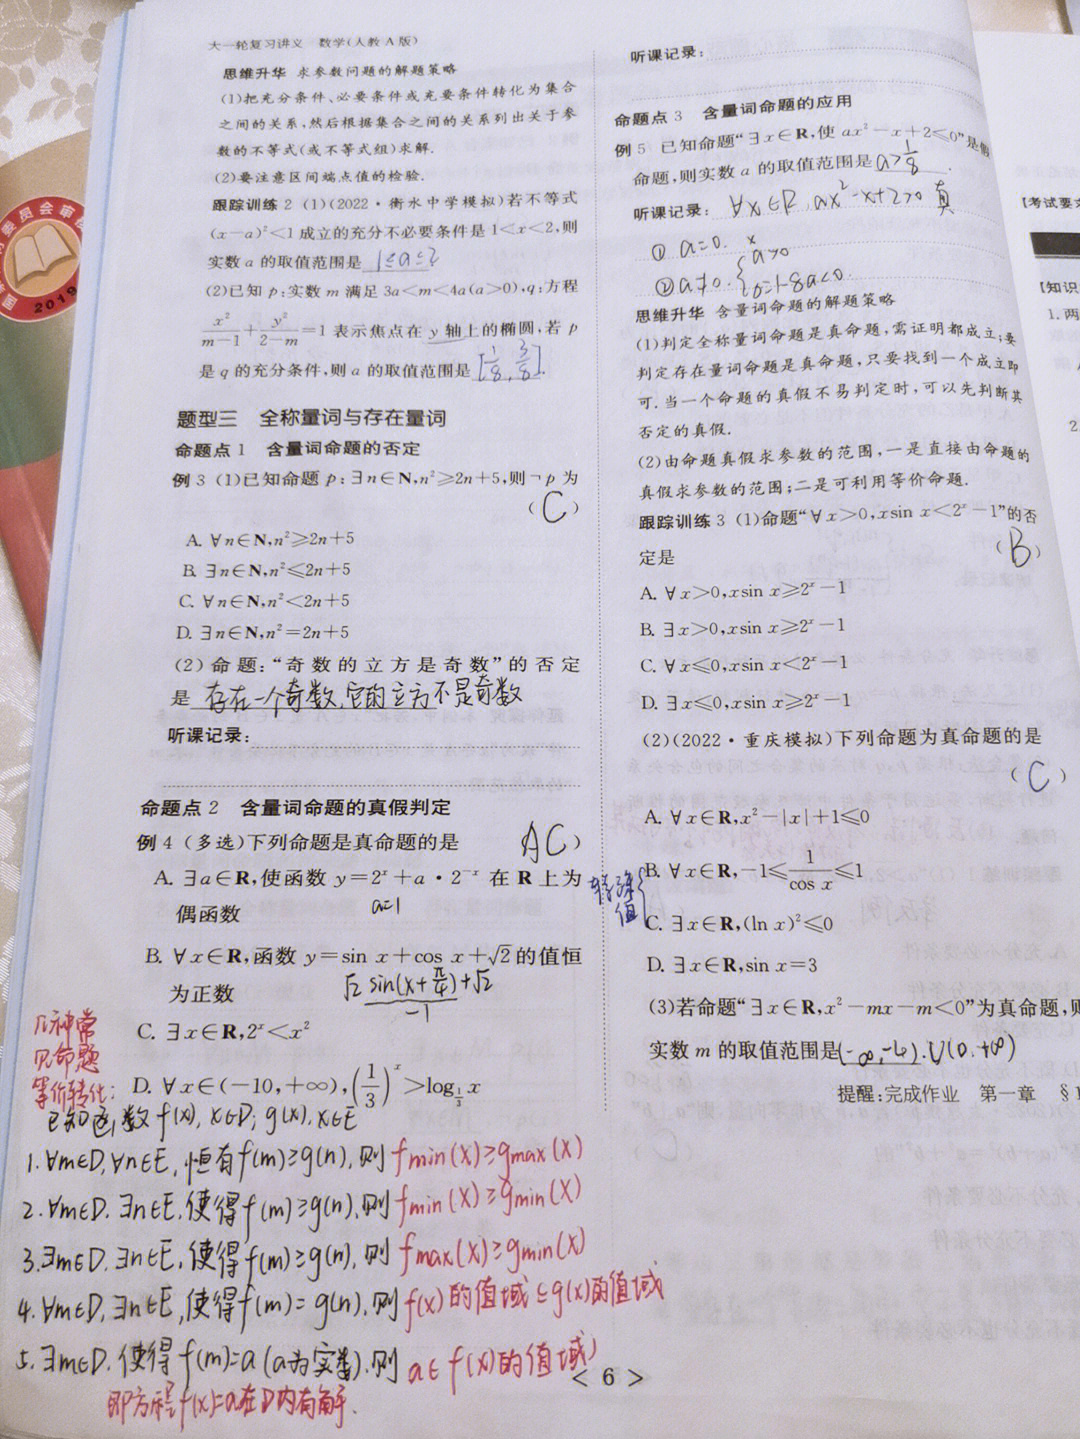 大一轮复习讲义 数学(人教A版)
思维升华 求参数问题的解题策略
(1)把充分条件、必要条件或充要条件转化为集合
之间的关系,然后根据集合之间的关系列出关于参
数的不等式(或不等式组)求解.
(2)要注意区间端点值的检验.
跟踪训练2 (1)(2022·衡水中学模拟)若不等式
(x-a)²<1成立的充分不必要条件是1<x<2,则
实数a的取值范围是 1≤a≤2
(2)已知p:实数m满足3a<m<4a(a>0),q:方程
x²/(m-1)+y²/(2-m)=1表示焦点在y轴上的椭圆,若p
是q的充分条件,则a的取值范围是[1/8,3/8].
题型三 全称量词与存在量词
命题点1 含量词命题的否定
例3 (1)已知命题p:∃n∈N,n²≥2n+5,则¬p为
(C)
A.∀n∈N,n²≥2n+5
B.∃n∈N,n²≤2n+5
C.∀n∈N,n²<2n+5
D.∃n∈N,n²=2n+5
(2)命题:“奇数的立方是奇数”的否定
是 存在一个奇数,它的立方不是奇数
听课记录:
命题点2 含量词命题的真假判定
例4 (多选)下列命题是真命题的是 AC)
A.∃a∈R,使函数y=2ˣ+a·2⁻ˣ在R上为
偶函数 a=1
B.∀x∈R,函数y=sin x+cos x+√2的值恒
为正数 √2sin(x+π/4)+√2
-1
C.∃x∈R,2ˣ<x²
D.∀x∈(-10,+∞),(1/3)ˣ>log_{1/3}x
几种常
见命题
等价转化:
已知函数f(x),x∈D;g(x),x∈E
1.∀m∈D,∀n∈E,恒有f(m)≥g(n),则fmin(x)≥gmax(x)
2.∀m∈D,∃n∈E,使得f(m)≥g(n),则fmin(x)≥gmin(x)
3.∃m∈D,∃n∈E,使得f(m)≥g(n),则fmax(x)≥gmin(x)
4.∀m∈D,∃n∈E,使得f(m)=g(n),则f(x)的值域⊆g(x)的值域
5.∃m∈D,使得f(m)=a(a为实数),则a∈f(x)的值域
即方程f(x)=a在D内有解.
<6>
听课记录:
命题点3 含量词命题的应用
例5 已知命题“∃x∈R,使ax²-x+2≤0”是假
命题,则实数a的取值范围是a>1/8.
听课记录:∀x∈R,ax²-x+2>0 真
①a=0. x
②a≠0.{a>0
Δ=1-8a<0.
思维升华 含量词命题的解题策略
(1)判定全称量词命题是真命题,需证明都成立;要
判定存在量词命题是真命题,只要找到一个成立即
可.当一个命题的真假不易判定时,可以先判断其
否定的真假.
(2)由命题真假求参数的范围,一是直接由命题的
真假求参数的范围;二是可利用等价命题.
跟踪训练3 (1)命题“∀x>0,xsin x<2ˣ-1”的否
定是 (B)
A.∀x>0,xsin x≥2ˣ-1
B.∃x>0,xsin x≥2ˣ-1
C.∀x≤0,xsin x<2ˣ-1
D.∃x≤0,xsin x≥2ˣ-1
(2)(2022·重庆模拟)下列命题为真命题的是
(C)
A.∀x∈R,x²-|x|+1≤0
特殊值
B.∀x∈R,-1≤1/cos x≤1
C.∃x∈R,(ln x)²≤0
D.∃x∈R,sin x=3
(3)若命题“∃x∈R,x²-mx-m<0”为真命题,则
实数m的取值范围是(-∞,-4)∪(0,+∞)
提醒:完成作业 第一章 §1
【考试要
【知识
1.两
2019